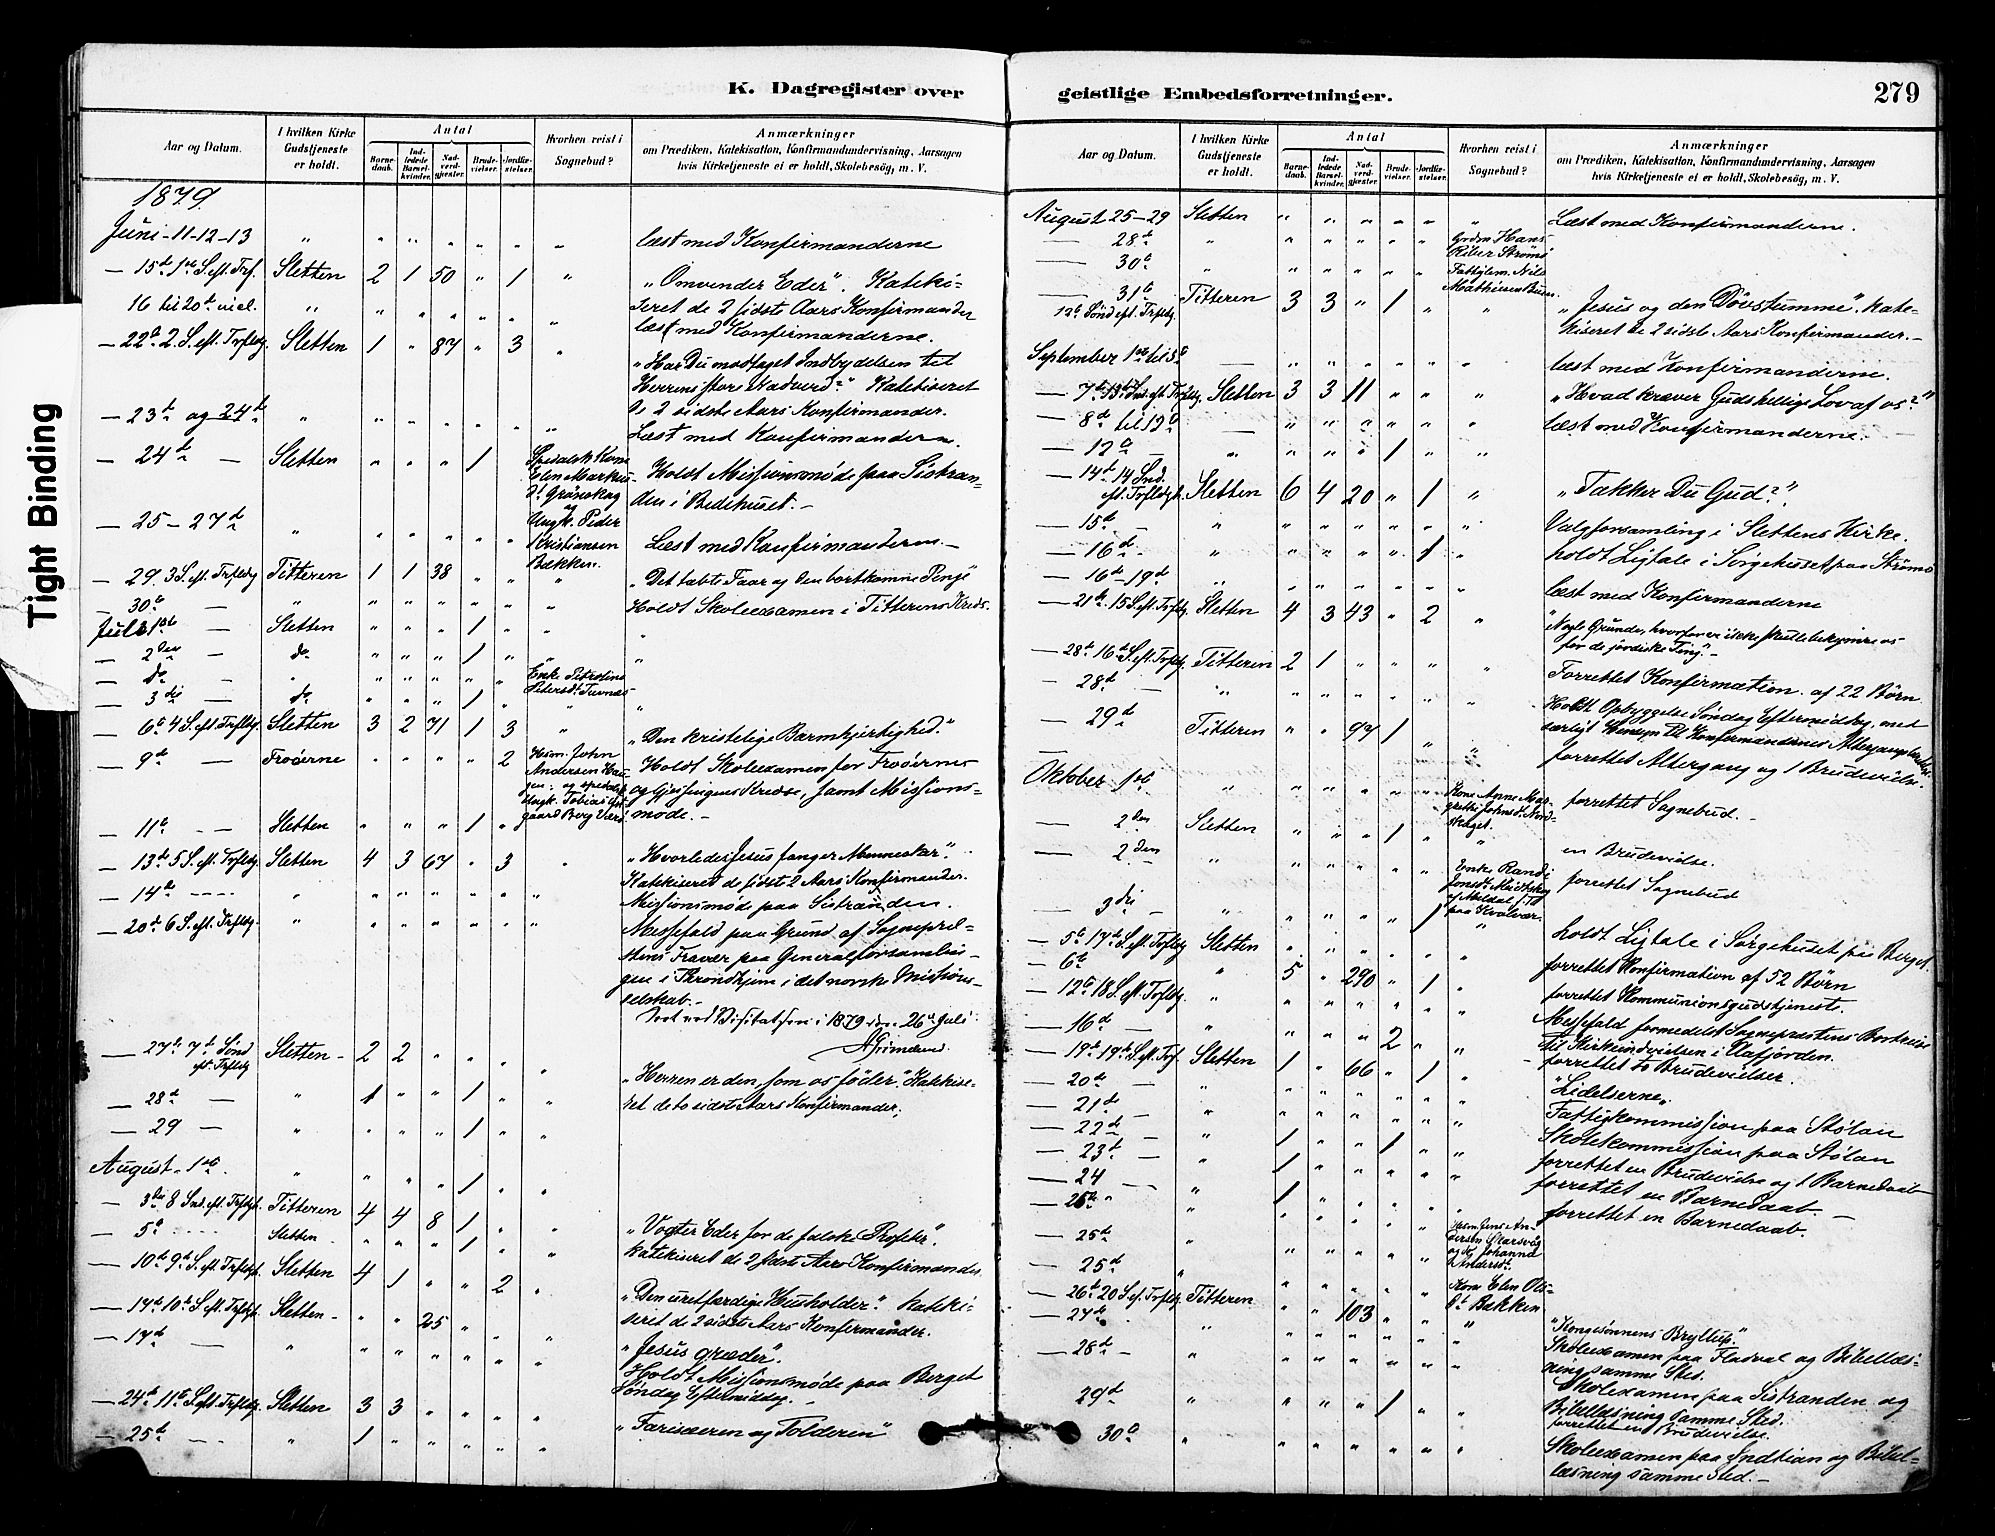 Tight Binding
K. Dagregister over
Aar og Datum.
I hvilken Kirke Gudstjeneste er holdt.
Antal
Barnedaab.
Indledede Barselkvinder.
Nadverdgjester.
Brudevielser.
Jordfæstelser.
Hvorhen reist i Sognebud?
Anmærkninger
om Prædiken, Katekisation, Konfirmandundervisning, Aarsagen
hvis Kirketjeneste ei er holdt, Skolebesög, m. V.
1879.
Juni 11-12-13 " " " " " " " læst med Konfirmanderne
— 15de 1ste S. eft. Trf. Sletten 2 1 50 " 1 " "Omvender Eder". Kateki-
16 til 20de incl. " " " " " " " seret de 2 sidste Aars Konfirmander
læst med Konfirmanderne.
— 22de 2. S. eft. Trfldg. Sletten 1 " 87 " 3 " "Har Du modtaget Indbydelsen til
Herrens store Nadverd?" Katekiseret
de 2 sidste Aars Konfirmander.
— 23de og 24de " " " " " " " Læst med Konfirmanderne.
— 24de — Sletten " " " 1 " Spedalsk Kone Holdt Missionsmøde paa Sistran-
Elen Markus- den i Bedehuset. —
dt Grønskag
og
Ungk. Peder
— 25-27de " " " " " " Kristiansen Læst med Konfirmanderne. —
Bækken.
— 29. 3 S. eft. Trfldg Titteren 1 1 38 " " " "Det tabte Faar og den bortkomne Penge
— 30te — " " " " " " " Holdt Skoleexamen i Titterens Kreds.
Juli 1ste — Sletten " " " 1 " " "
— 2den — do " " " 1 " " "
— do " " " " " " Enke Petroline
Pedersdt. Tuvnæs
— 3die — do " " " 1 " " "
— 6te 4 S. eft. Trfldg. Sletten 3 2 71 1 3 " "Den kristelige Barmhjertighed."
— 9de — Froöerne " " " " 2 Husm. John Holdt Skoleexamen for Froöernes
Andersen Hau- og Gjessingens Kredse, samt Missions-
gen, og spedalsk møde. —
Ungk. Tobias
— 11te — Sletten " " " 1 "
— 13de 5 S. eft. Trfldg. Sletten 4 3 67 " 3 " "Hvorledes Jesus fanger Mennesker".
Katekiseret de sidste 2 Aars Konfirmander.
— 14de " " " " " " " Missionsmøde paa Sistranden.
— 20de 6 S. eft. Trfldg. " " " " " " " Messefald paa Grund af Sognepræ-
stens Fravær paa Generalforsamlin-
gen i Throndhjem i det norske Missions-
selskab. —
Seet ved Visitatsen i 1879 den 26de Juli
AGrimelund.
— 27de 7de Sønd eft. Trfldg Sletten 2 2 " " " " "Herren er den, som os føder". Katekise-
ret de to sidste Aars Konfirmander.
— 28de — " 1 " " 1 " "
— 29 — " " " " 1 " "
August 1ste " " " " 1 " "
— 3die 8 Snd. eft. Trfldg. Titteren 4 4 8 1 " " "Vogter Eder for de falske Profeter".
Katekiseret de 2 sidste Aars Konfirmander.
— 5te Sletten " " " 1 " "
— 10de 9de S. eft. Trfldg. Sletten 4 1 " " 2 " "Den uretfærdige Husholder". Kateki-
seret de 2 sidste Aars Konfirmander.
— 17de 10de S. eft. Trfldg. Sletten " " 25 " " " "Jesus græder".
— 17de " " " " " " " Holdt Missionsmøde paa Berget
Søndag Eftermiddag. —
— 24de 11te S. eft. Trfldg. Sletten 3 3 " " " " "Farisæeren og Tolderen"
— 25de " 1 " " " " "
geistlige Embedsforretninger.
279
Aar og Datum.
I hvilken Kirke Gudstjeneste er holdt.
Antal
Barnedaab.
Indledede Barselkvinder.
Nadverdgjester.
Brudevielser.
Jordfæstelser.
Hvorhen reist i Sognebud?
Anmærkninger
om Prædiken, Katekisation, Konfirmandundervisning, Aarsagen
hvis Kirketjeneste ei er holdt, Skolebesög, m. V.
August 25-29 Sletten " " " " " " Læst med Konfirmanderne.
— 28de " " " " " " Hans
Riber Strømø
— 30te " " " " " " Fattiglem. Nils
Mathiesen
— 31te 12te Sønd eft. Trfldg. Titteren 3 3 " 1 " " "Jesus og den Døvstumme". Kate-
kiseret de 2 sidste Aars Konfirmander. —
September 1ste til 5te — " " " " " " læst med Konfirmanderne.
— 7de 13de Snd. eft. Trfldg. Sletten 3 3 11 " " " "Hvad kræver Guds hellige Lov af os?"
— 8de til 12te — " " " " " " læst med Konfirmanderne.
— 12te " " " " 1 " "
— 14de 14 Snd. eft. Trfldg. Sletten 6 4 20 " 1 " "Takker Du Gud?"
— 15de — " " " " " " " Valgforsamling i Slettens Kirke.
— 16de — " " " " " 1 " holdt Ligtale i Sørgehuset paa Strømø
— 16de-19de " " " " " " " læst med Konfirmanderne
— 21de 15 S. eft. Trfldg. Sletten 4 3 43 " 2 " "Nogle Grunde, hvorfor vi ikke skulle bekymre os
for de jordiske Ting". —
— 28de 16de S. eft. Trfldg. Titteren 2 1 " " " " Forrettet Konfirmation af 22 Børn
— 28de — " " " " " " " Holdt Opbyggelse Søndag Eftermiddag, med
særligt Hensyn til Konfirmandernes Altergang
— 29de Titteren " " 97 1 " " forrettet Altergang og 1 Brudevielse.
Oktober 1ste " " " " " " Kone Anne Mar- forrettet Sognebud.
grethe Johnsdt.
— 2den Sletten " " " 1 " " en Brudevielse.
— 2den " " " " " " Enke Randi forrettet Sognebud
Jonsdt.
paa Kvalvær.
— 3die — " " " " " 1 " holdt Ligtale i Sørgehuset paa Berget.
— 5te 17de S. eft. Trfldg Sletten " " " " " " forrettet Konfirmation af 52 Børn
— 6te " 5 " 290 " 1 " forrettet Kommunionsgudstjeneste.
— 12te 18 S. eft. Trfldg. " " " " " " " Messefald formedelst Sognepræstens Bortreise
til Kirkeindvielsen i Aafjorden.
— 16de — " " " " 2 " " forrettet to Brudevielser.
— 19de 19de S. eft. Trf. Sletten 1 " 66 " 1 " "Lidelserne".
— 20de — " " " " " " " Fattigkommission paa Stølan
— 21de — " " " " " " " Skolekommission paa Stølan
— 22de — " 1 " " 1 " " forrettet en Brudevielse og 1 Barnedaab
— 23de — " 1 " " " " " forrettet en Barnedaab —
— 24 — " 1 " " " " " forrettet en Barnedaab.
— 25de " " " " " " " Husm. Jens An-
dersen Skarsvåg
— 25de " " " " " " og Johanna
Andersdt.
— 25de " " " " " " Kone Elen Ols-
dt. Bækken
— 26de 20 S. ef. Trfldg. Titteren " " 103 " " " "Kongesønnens Bryllup."
— 27de " " " " " " " Skoleexamen paa Fladval og Bibellæs-
ning samme Sted.
— 28de — " " " " " " " Skoleexamen paa Sistranden og
Bibellæsning samme Sted.
— 29de " " " " 1 " " forrettet en Brudevielse.
— 30te " " " " " " " Skoleexamen paa Indtian og Bibel-
læsning samme Sted. —